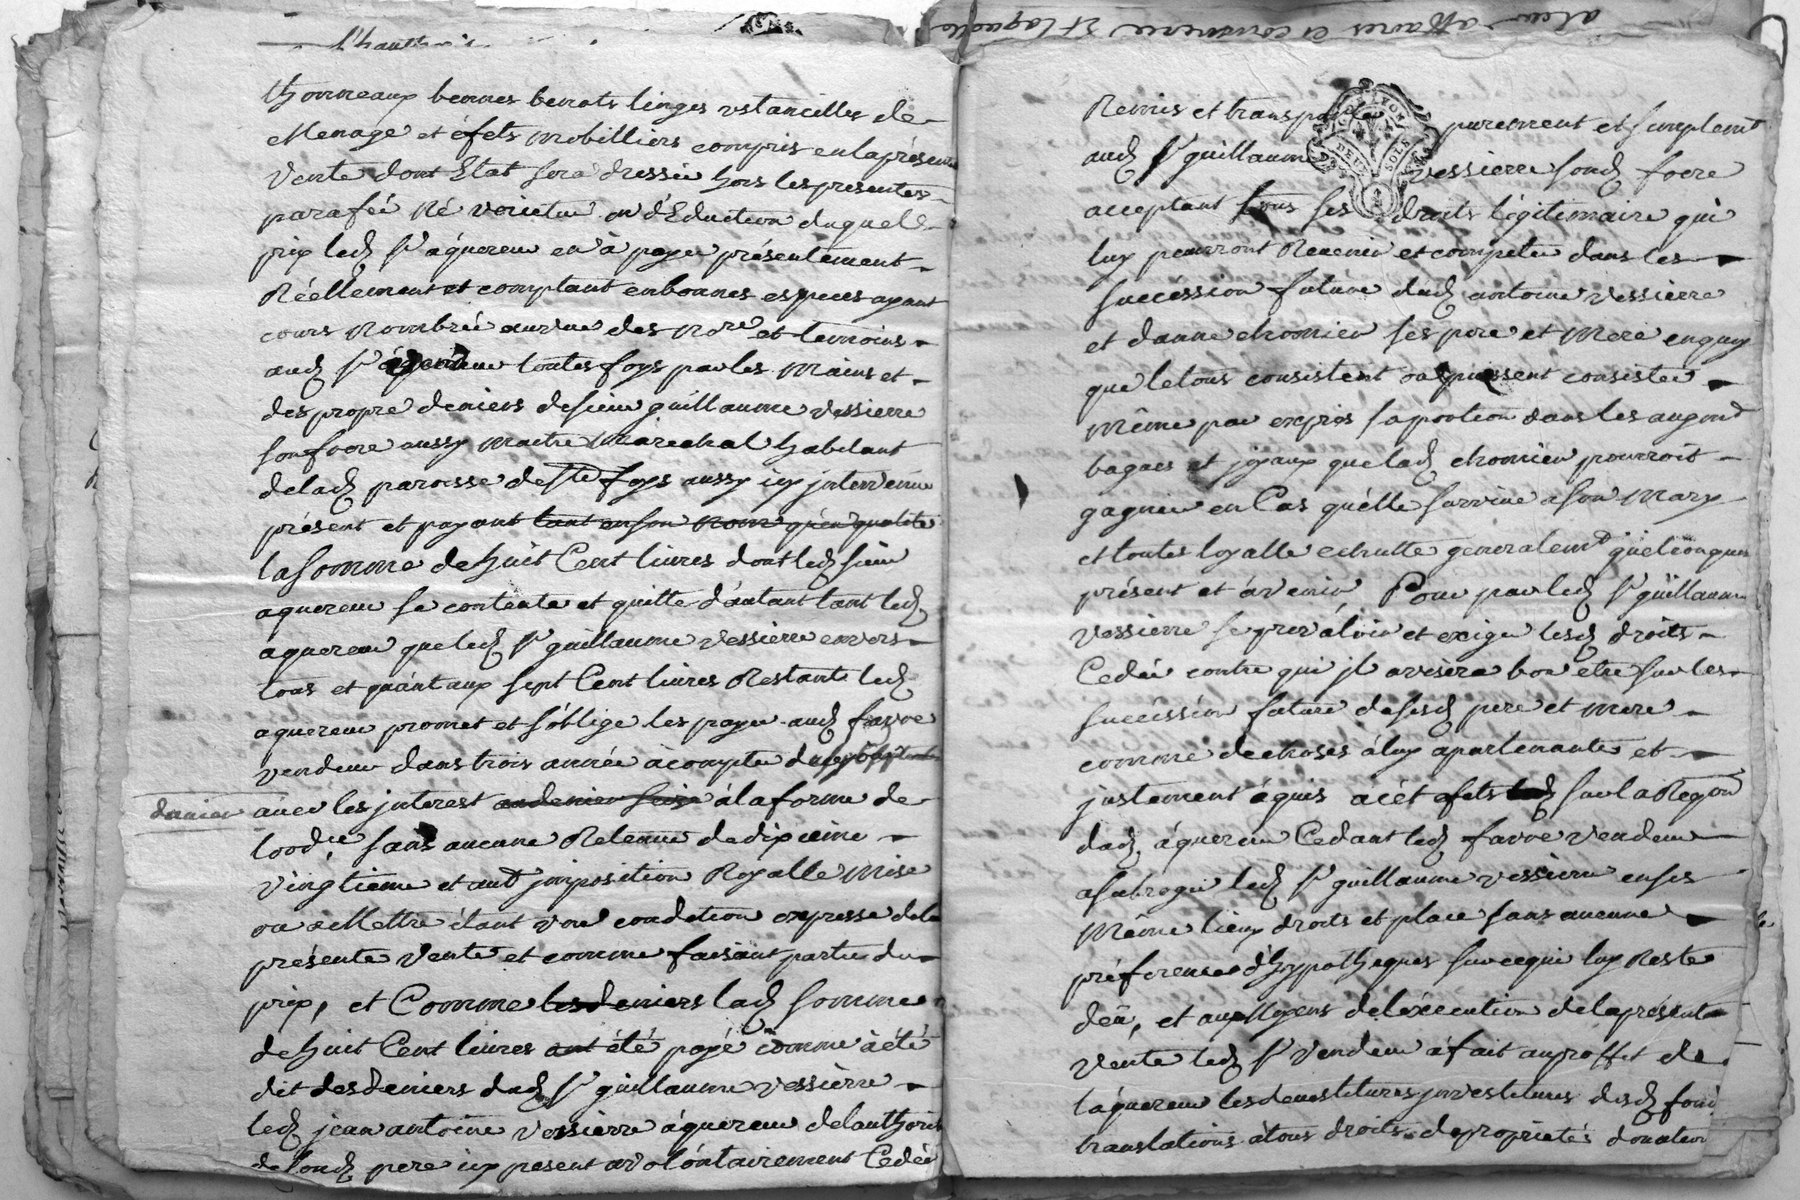 thonneaux bennes benots linges ustancilles de
Menage et éfets mobilliers compris en la présente
vente dont Etat sera dressée hors les presentes
parafée Né varietur en d'Eduction duquel
prix led sr aquereur en à payé présentement
Réellement et comptant en bonnes especes ayant
cours nombrée au vue des Nore et temoins
aud sr toutes foys par les mains et
des propre deniers de sieur guillaume vessierre
son frere aussy maitre maréchal habitant
de lad paroisse de ste foys aussy icy intervenu
présent et payant tant en son nom qu'en qualité
la somme de huit Cent livres dont led sieur
aquereur se contente et quitte d'autant tant led
aquereur que led sr guillaume vessierre envers
tous et quant aux sept Cent livres Restants led
aquereur promet et s'oblige les payer aud favre
vendeur dans trois année à compter
denier avec les interest au denier à la forme de
lordce sans aucune Retenue de dixieme
vingtieme et autt imposition Royalle mise
ou a Mettre étant une condition expresse de la
présente vente et comme faisant partie du
prix, et Comme les deniers lad somme
de huit Cent livres ont été payé comme à été
dit des deniers dud sr guillaume vessierre
led jean antoine vessierre aquereur de lauthorité
de sond pere icy present a volontairement Cedée
Remis et transporté purement et simplemt
aud sr guillaume vessierre sond frere
acceptant tous ses droits légitimaire qui
luy pourront Revenir et competer dans les
succéssion future dud antoine vessierre
et danne chomier ses pere et mere en quoy
que letous consistent ou puissent consister
même par expres sa portion dans les augmt
bagues et joyaux que lad chomier pourroit
gagner en Cas quélle survive a son mary
et toutes loyalle echutte generalemt quelconques
présent et avenir Pour par led sr guillaume
vessierre se prevaloir et exiger lesd droits
Cedée contre qui il avisera bon etre sur les
succéssion future de sesd pere et mere
comme de choses a luy apartenante et
justement aquis a cét éfets led sur la Reqon
dud aquereur Cedant led favre vendeur
a subrogé led sr guillaume vessierre en ses
même lieux droits et place sans aucune
préférence d'hypotheques sur ce qui luy Reste
deû, et aux Moyens de léxécution de la présente
vente led sr vendeur a fait au proffit de
l'aquereur les demistitures investitures desd fond
translations à tous droits de proprietés donation